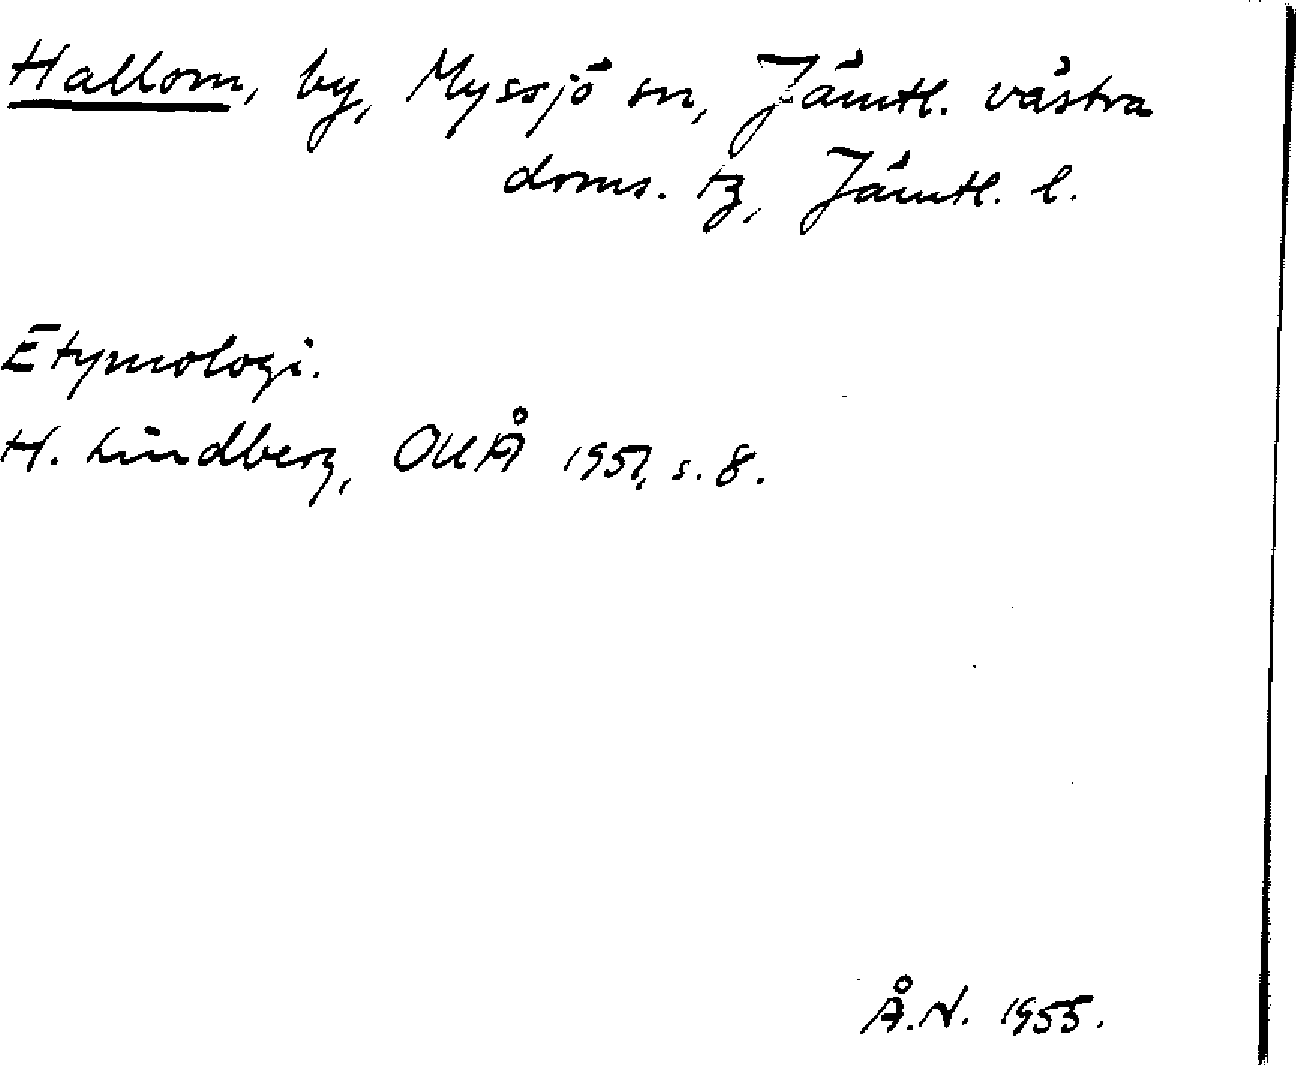 Hallom, by, Myssjö sn, Jämtl. västra
doms. tg, Jämtl. l.
Etymologi.
H. Lindberg, OUÅ 1951, s. 8.
Å.N. 1955.